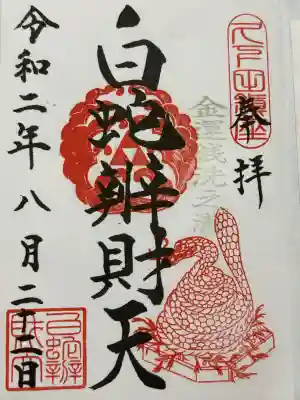 奉拝
金運銭洗之滝
白蛇辨財天
令和二年八月二十二日
白蛇辨財天